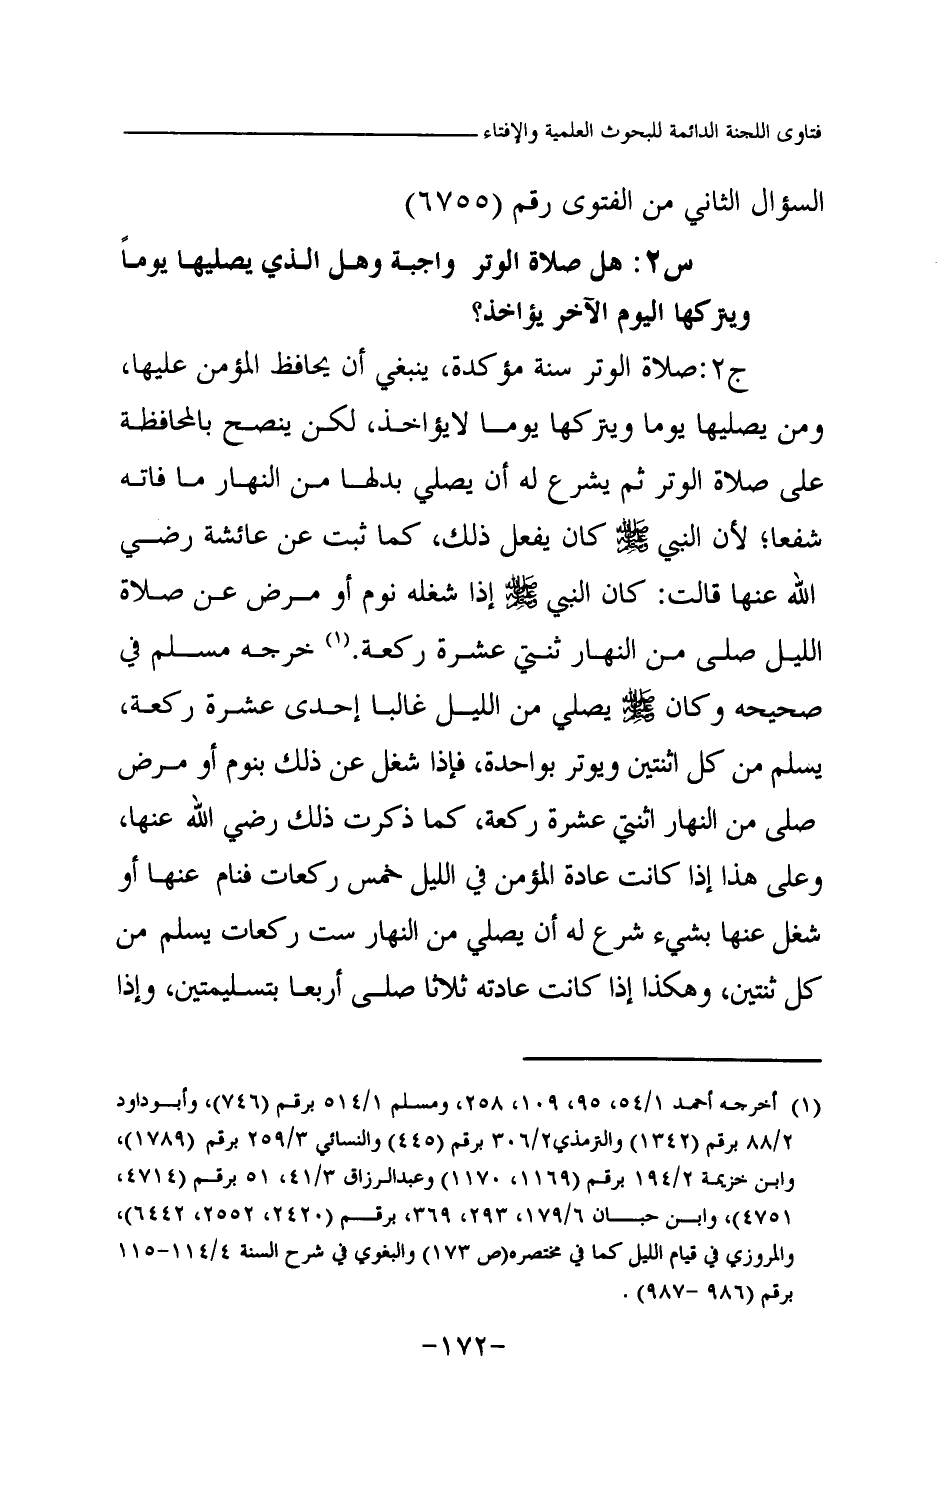 فتاوى اللجنة الدائمة للبحوث العلمية والإفتاء
السؤال الثاني من الفتوى رقم (٦٧٥٥)
س٢: هل صلاة الوتر واجبة وهل الذي يصليها يوماً
ويتركها اليوم الآخر يؤاخذ؟
ج٢:صلاة الوتر سنة مؤكدة، ينبغي أن يحافظ المؤمن عليها،
ومن يصليها يوما ويتركها يوما لايؤاخذ، لكن ينصح بالمحافظة
على صلاة الوتر ثم يشرع له أن يصلي بدلها من النهار ما فاته
شفعا؛ لأن النبي ﷺ كان يفعل ذلك، كما ثبت عن عائشة رضي
الله عنها قالت: كان النبي ﷺ إذا شغله نوم أو مرض عن صلاة
الليل صلى من النهار ثنتي عشرة ركعة.(١) خرجه مسلم في
صحيحه وكان ﷺ يصلي من الليل غالبا إحدى عشرة ركعة،
يسلم من كل اثنتين ويوتر بواحدة، فإذا شغل عن ذلك بنوم أو مرض
صلى من النهار اثنتي عشرة ركعة، كما ذكرت ذلك رضي الله عنها،
وعلى هذا إذا كانت عادة المؤمن في الليل خمس ركعات فنام عنها أو
شغل عنها بشيء شرع له أن يصلي من النهار ست ركعات يسلم من
كل ثنتين، وهكذا إذا كانت عادته ثلاثا صلى أربعا بتسليمتين، وإذا
(١) أخرجه أحمد ٥٤/١، ٩٥، ١٠٩، ٢٥٨، ومسلم ٥١٤/١ برقم (٧٤٦)، وأبوداود
٨٨/٢ برقم (١٣٤٢) والترمذي٣٠٦/٢ برقم (٤٤٥) والنسائي ٢٥٩/٣ برقم (١٧٨٩)،
وابن خزيمة ١٩٤/٢ برقم (١١٦٩، ١١٧٠) وعبدالرزاق ٤١/٣، ٥١ برقم (٤٧١٤،
٤٧٥١)، وابن حبان ١٧٩/٦، ٢٩٣، ٣٦٩، برقم (٢٤٢٠، ٢٥٥٢، ٦٤٤٢)،
والمروزي في قيام الليل كما في مختصره(ص ١٧٣) والبغوي في شرح السنة ١١٤/٤-١١٥
برقم (٩٨٦ -٩٨٧) .
-١٧٢-